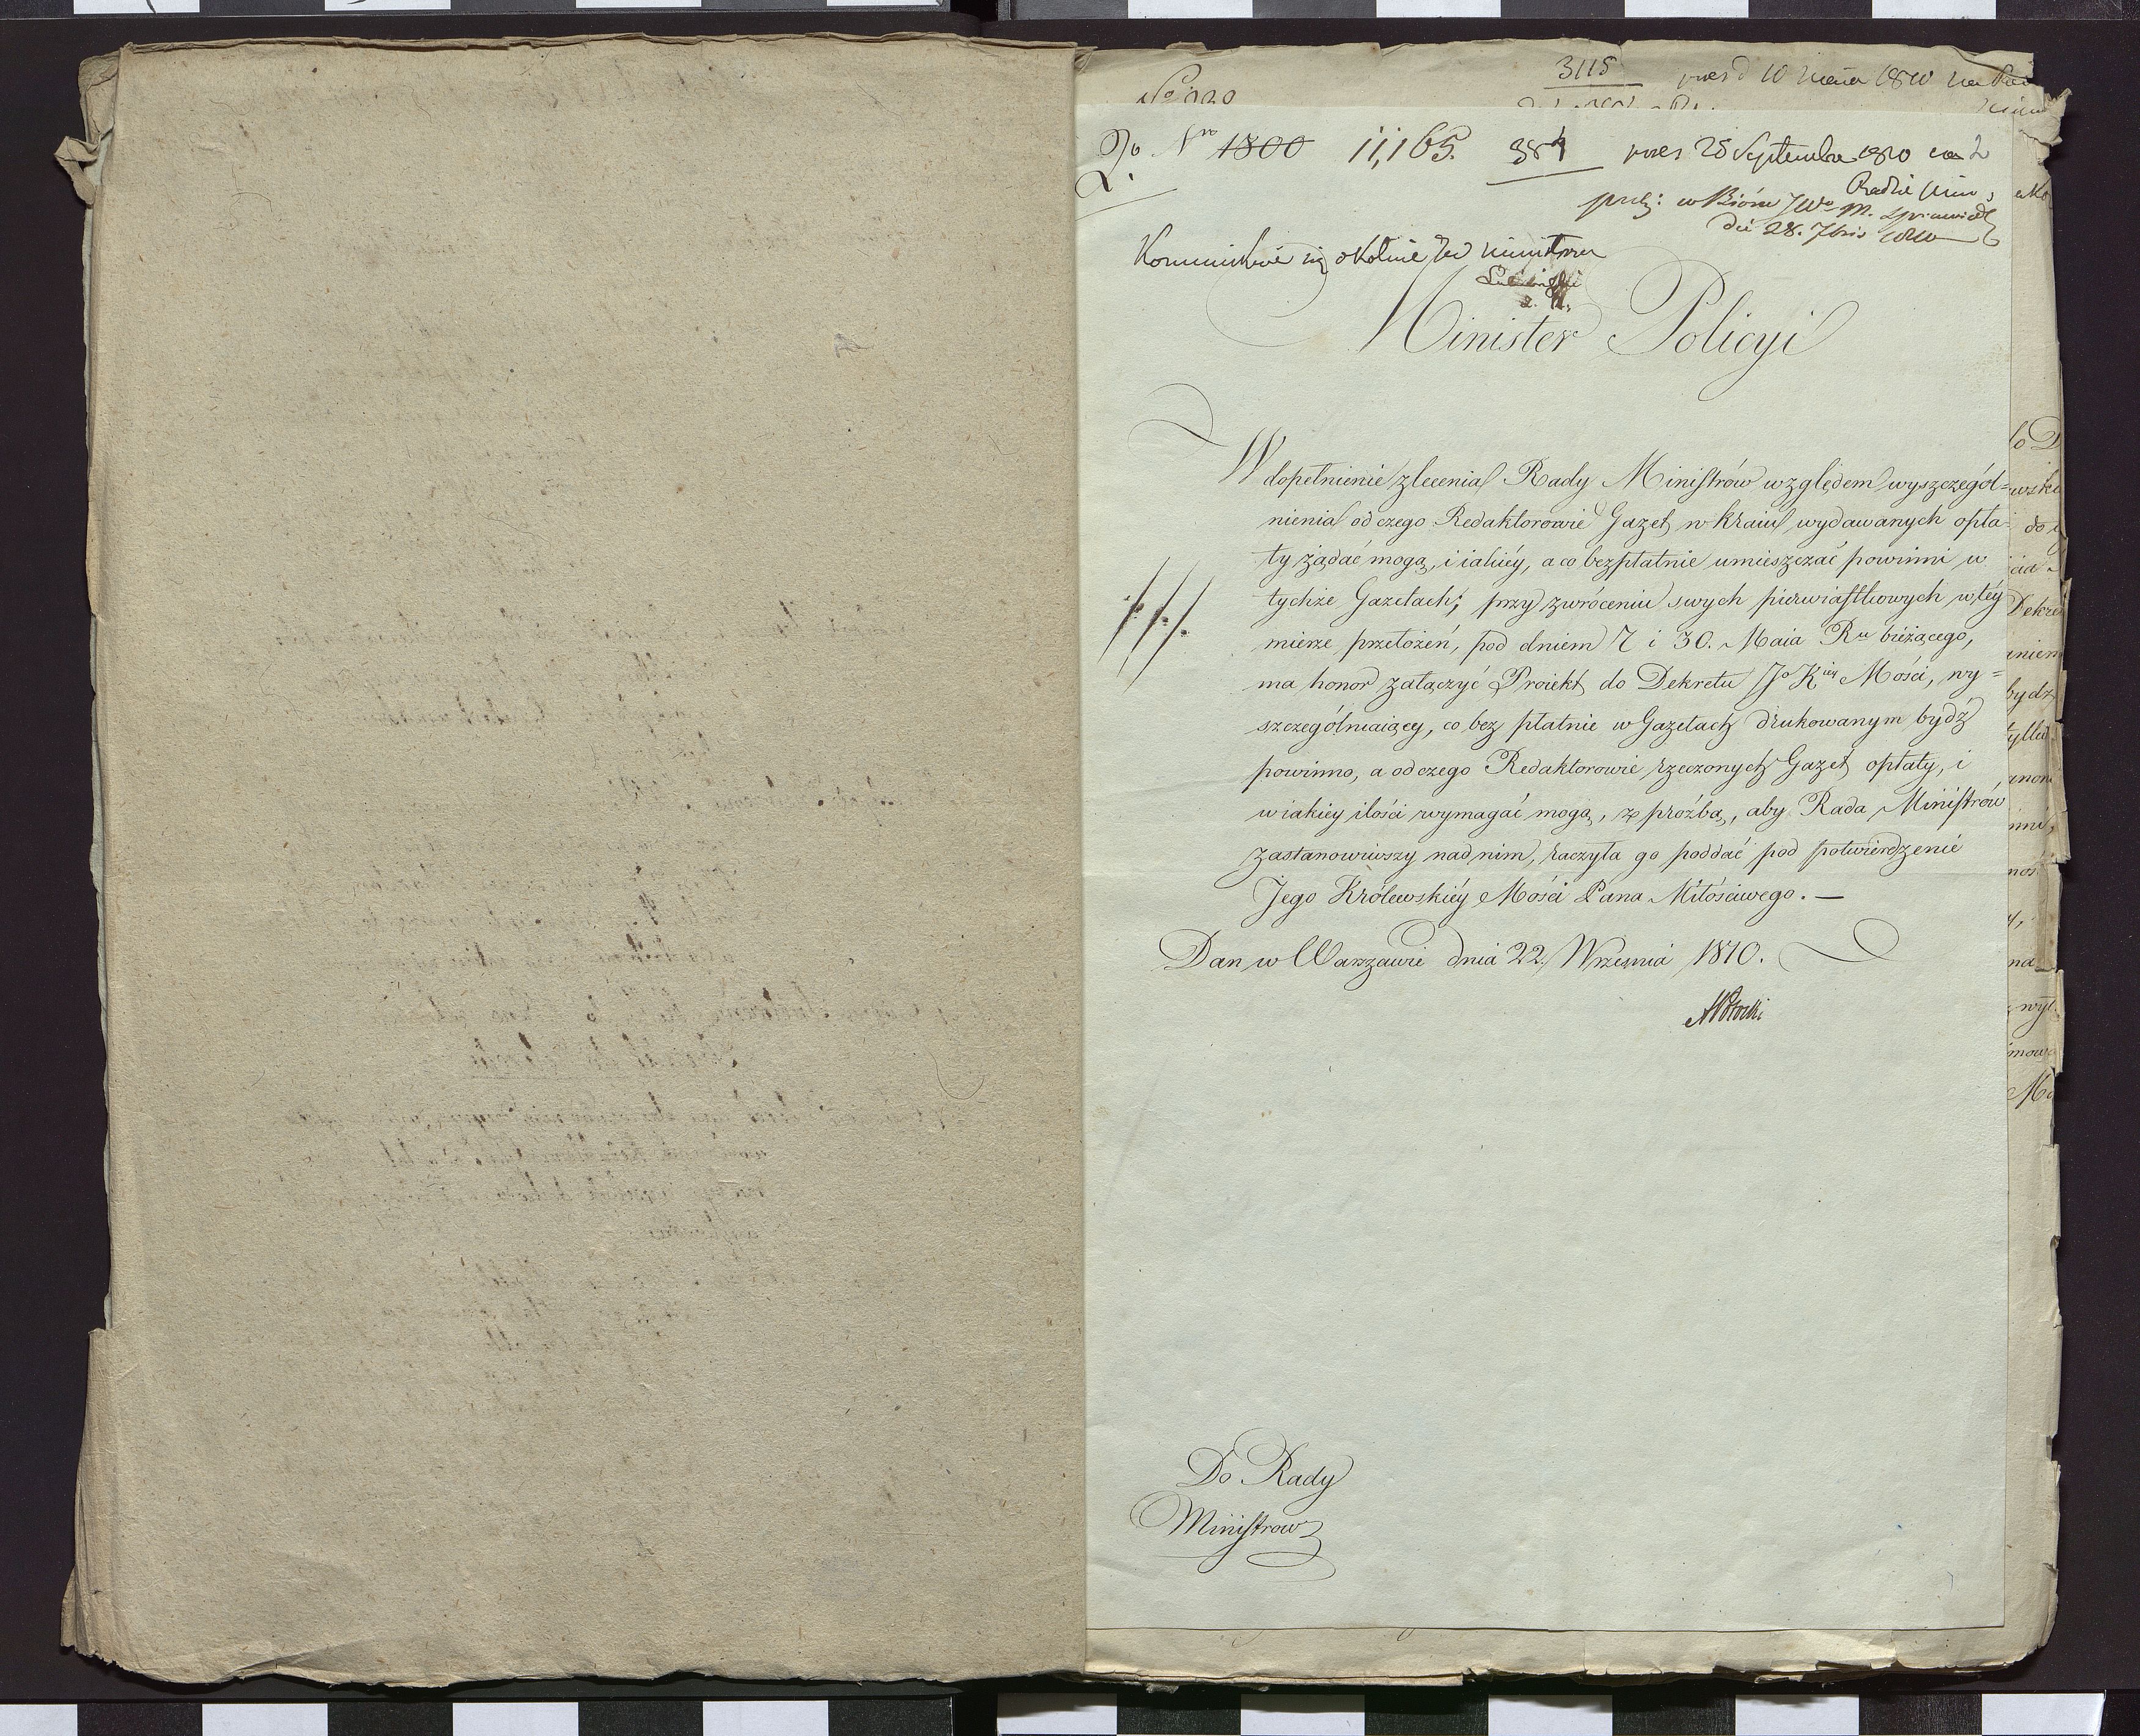 3115 10 1810
Do Nro 1800 11,165. 384 25 Septembra 1810 2
Radzie Min
w Biórze JWo M. Sprawiedl
die 28. 7bris 1810
Minister Policyi
W dopełnienie zlecenia Rady Ministrów względem wyszczegól=
nienia od czego Redaktorowie Gazet w kraiu wydawanych opła-
ty żądać mogą, i iakiéy, a co bezpłatnie umieszczać powinni w
tychże Gazetach; przy zwróceniu swych pierwiastkowych w téy
mierze przełożeń, pod dniem 7 i 30. Maia Ru bieżącego,
ma honor załączyć Proiekt do Dekretu Jo Kiéy Mości, wy=
szczególniaiący, co bez płatnie w Gazetach drukowanym bydź
powinno, a od czego Redaktorowie rzeczonych Gazet opłaty, i
w iakiey ilości wymagać mogą, z proźbą, aby Rada Ministrów
zastanowiwszy nad nim, raczyła go poddać pod potwierdzenie
Jego Królewskiéy Mości Pana Miłościwego. —
Dan w Warszawie dnia 22. Września 1810.
APotocki
Do Rady
Ministrow